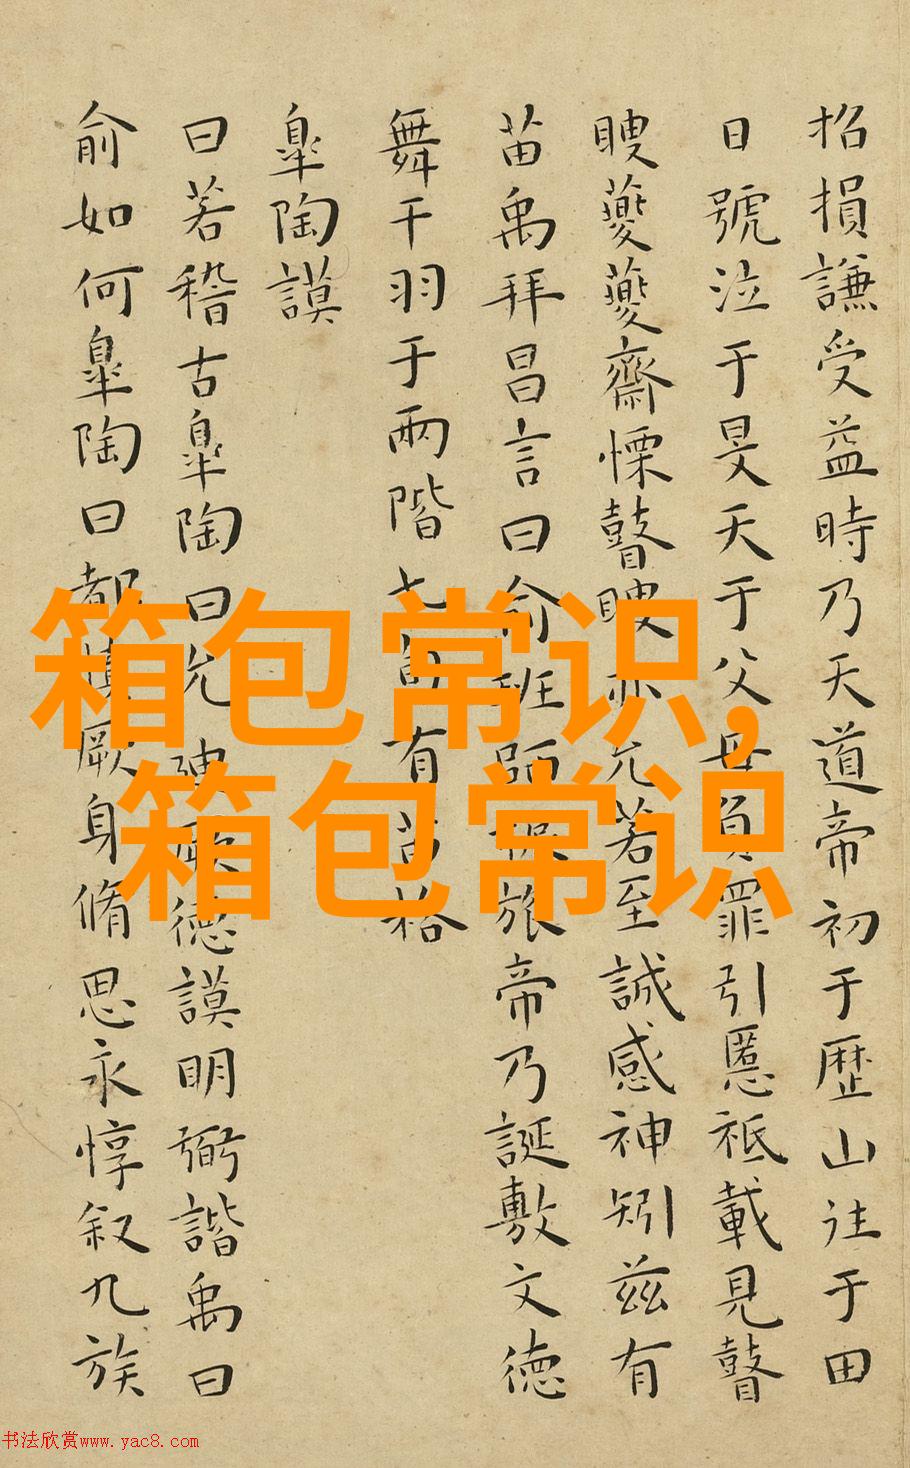 招損謙受益時乃天道帝初于歷山往于田
日號泣于旻天于父母負罪引慝祗載見瞽
瞍夔夔齋慄瞽瞍亦允若至諴感神矧茲有
苗禹拜昌言曰俞班師振旅帝乃誕敷文德
舞干羽于兩階七旬有苗格
臯陶謨
曰若稽古臯陶曰允迪厥德謨明弼諧禹曰
俞如何臯陶曰都慎厥身脩思永惇叙九族
箱包常识,
箱包常识
书法欣赏www.yac8.com